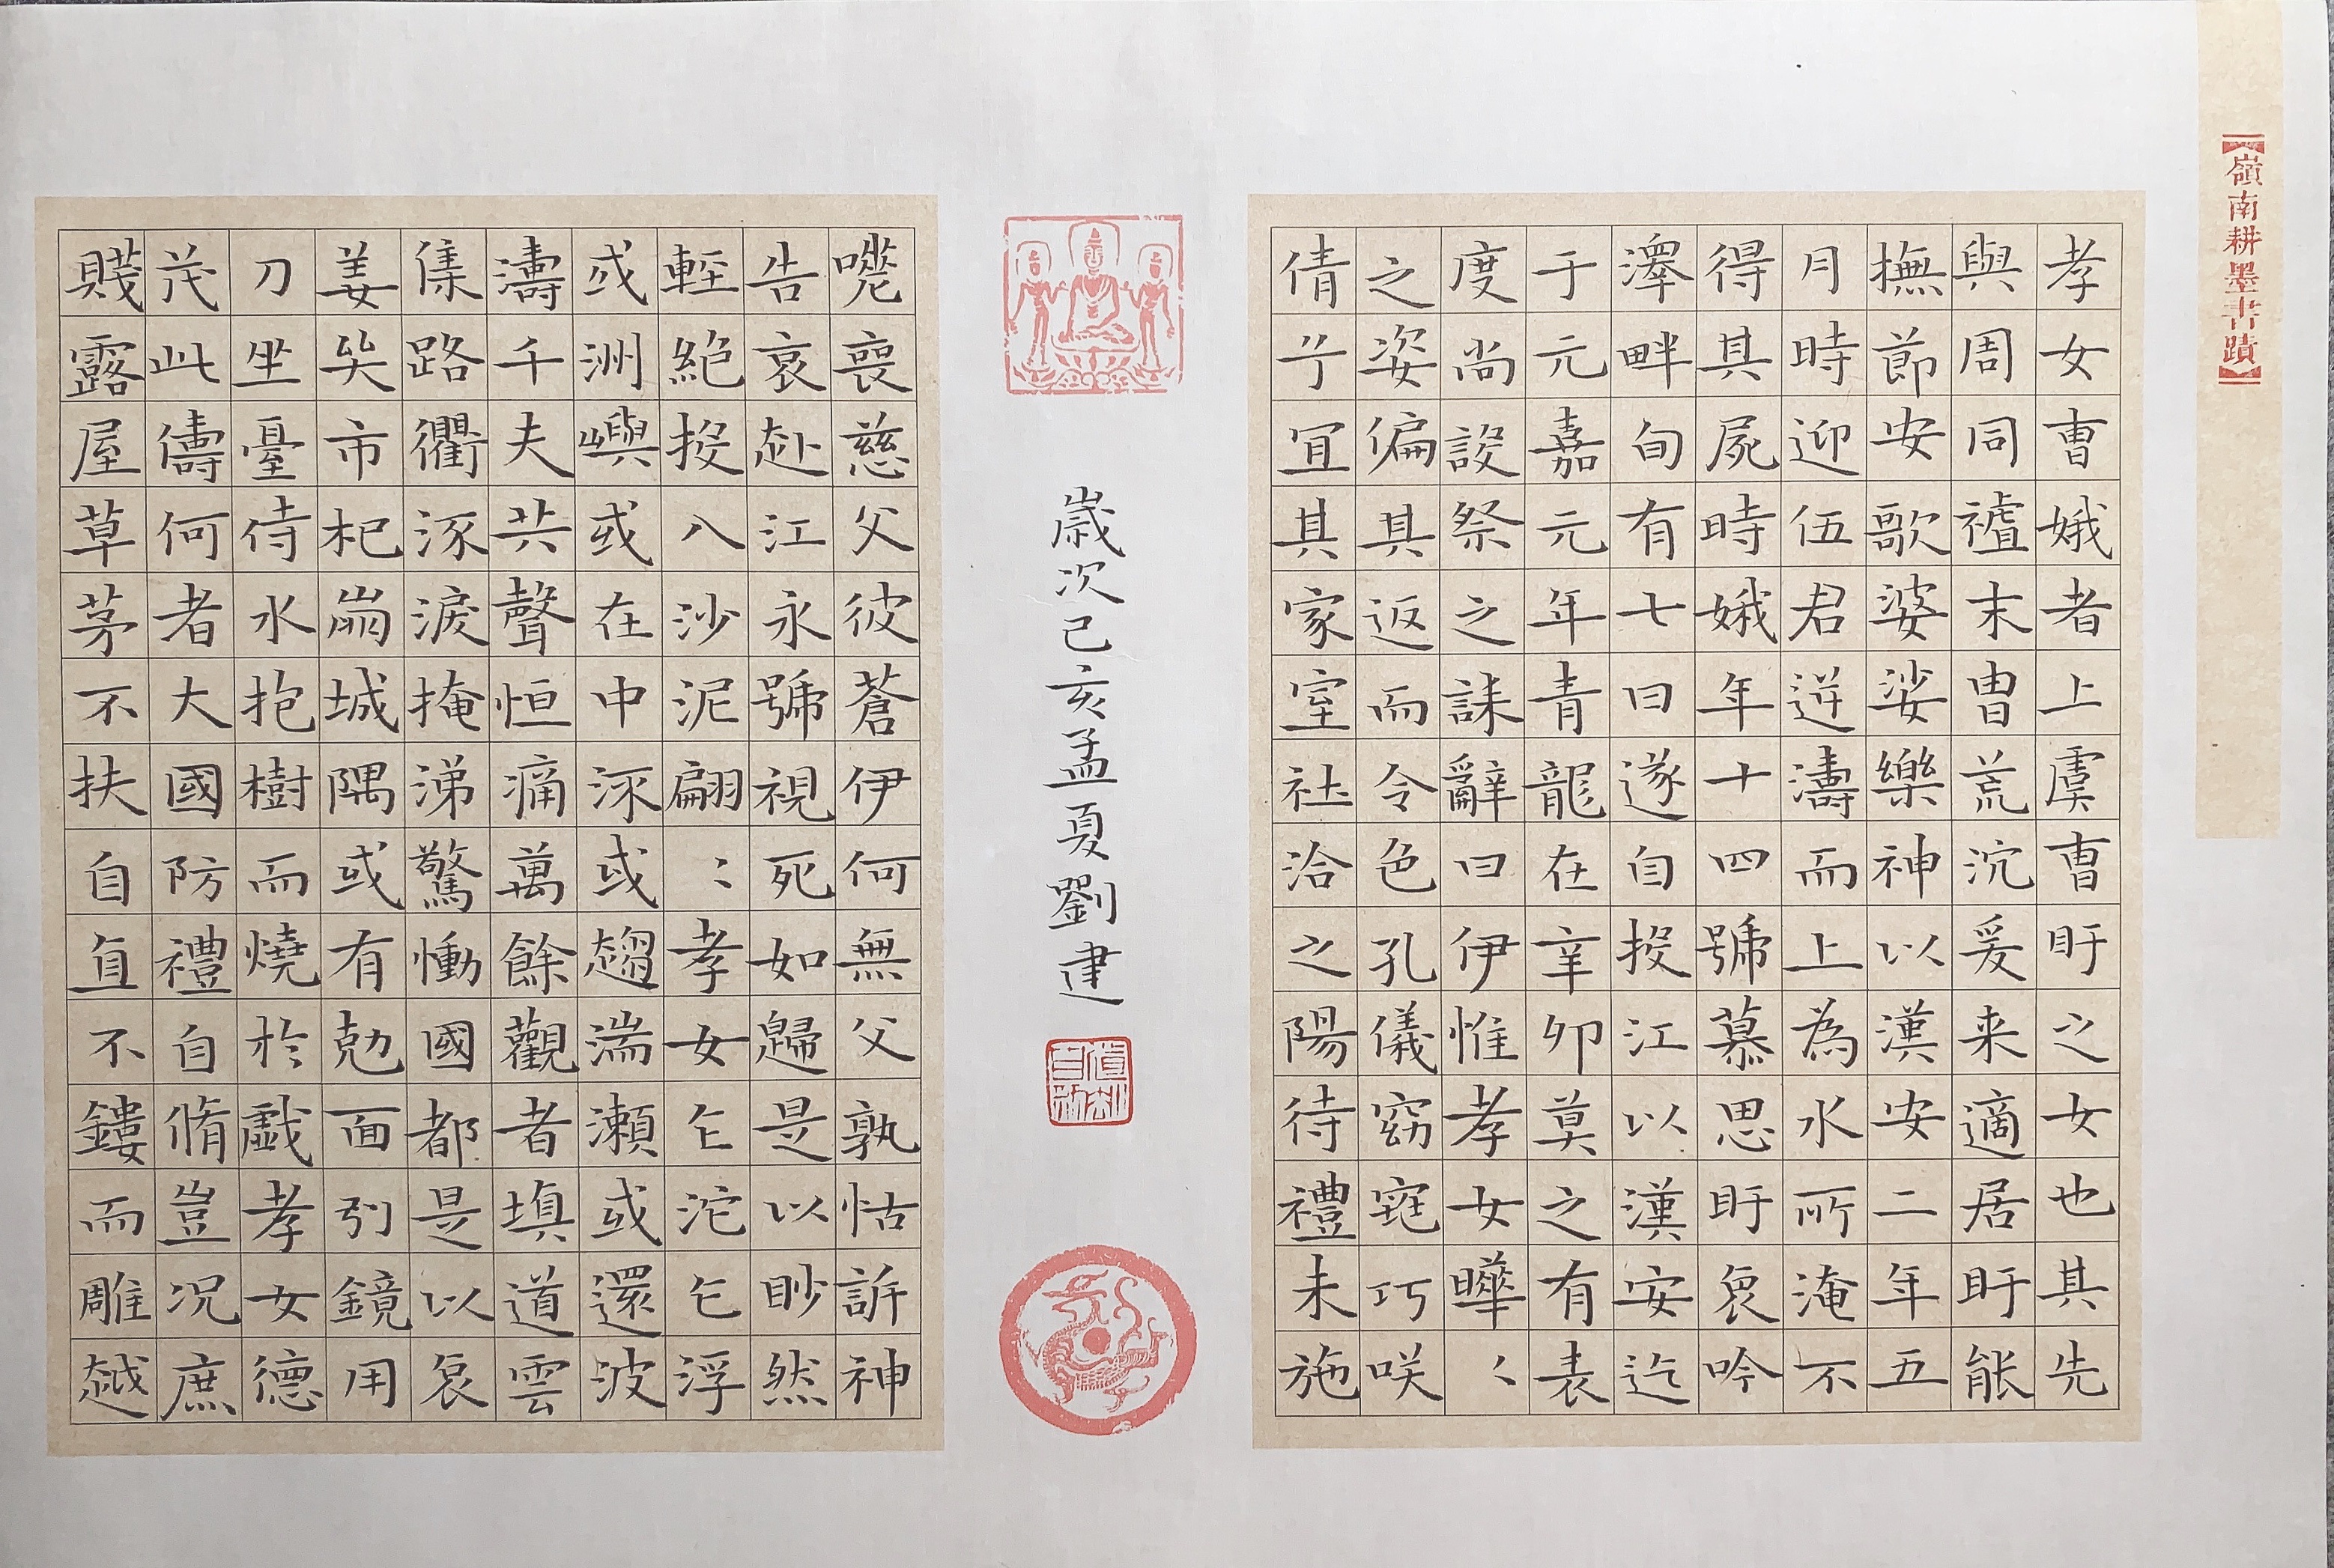 【嶺南耕墨書蹟】
孝女曺娥者上虞曺盱之女也其先
與周同禮末曺荒沉爰来適居盱能
撫節安歌婆娑樂神以漢安二年五
月時迎伍君逆濤而上為水所淹不
得其屍時娥年十四號慕思盱哀吟
澤畔旬有七日遂自投江以漢安迄
于元嘉元年青龍在辛卯莫之有表
度尚設祭之誄辭曰伊惟孝女曄〻
之姿偏其返而令色孔儀窈窕巧咲
倩兮宜其家室社洽之陽待禮未施
歲次己亥孟夏劉建
嗟喪慈父彼蒼伊何無父孰怙訴神
告哀赴江永號視死如歸是以眇然
輕絕投入沙泥翩〻孝女乍沱乍浮
或洲嶼或在中流或趨湍瀨或還波
濤千夫共聲恒痛萬餘觀者填道雲
集路衢涿淚掩涕驚慟國都是以哀
姜哭市杞崩城隅或有勊面引鏡用
刀坐臺侍水抱樹而燒於戲孝女德
茂此儔何者大國防禮自脩豈况庶
賤露屋草茅不扶自直不鏤而雕越